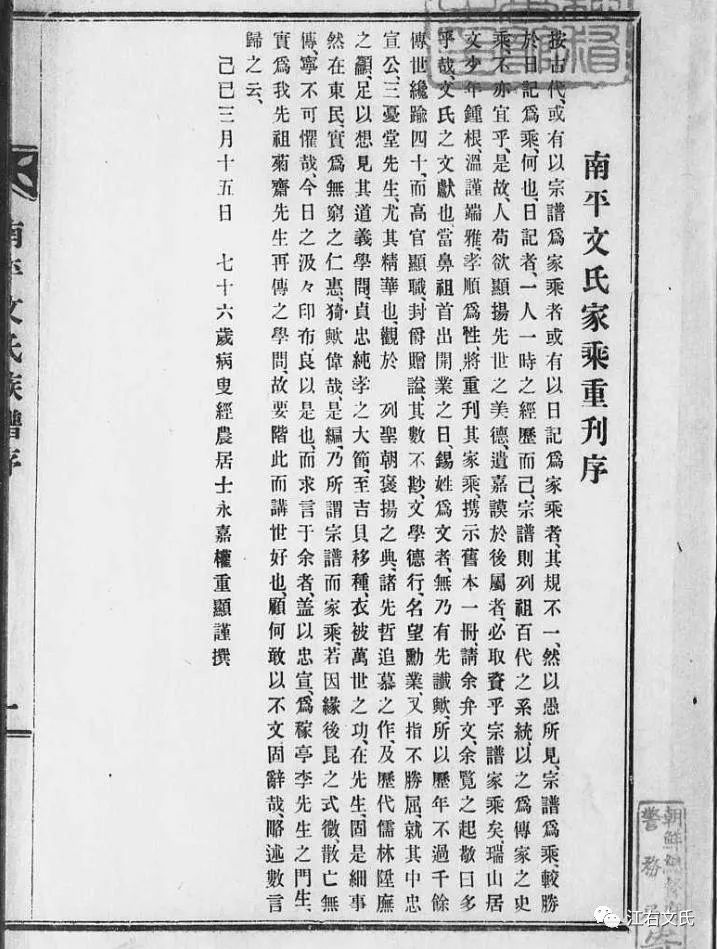 南平文氏家乘重刋序
按古代、或有以宗譜爲家乘者或有以日記爲家乘者、其規不一、然以愚所見、宗譜爲乘、較勝
於日記爲乘、何也、日記者、一人一時之經歷而已、宗譜則列祖百代之系統、以之爲傳家之史
乘、不亦宜乎、是故、人苟欲顯揚先世之美德、遺嘉謨於後屬者、必取資乎宗譜家乘矣瑞山居
文少年鍾根、溫謹端雅、孝順爲性、將重刊其家乘、携示舊本一冊、請余弁文、余覽之起敬曰多
乎哉、文氏之文獻也、當鼻祖首出開業之日、錫姓爲文者、無乃有先讖歟、所以歷年不過千餘
傳世纔踰四十、而高官顯職、封爵贈謚、其數不尠、文學德行、名望勳業、又指不勝屈、就其中忠
宣公、三憂堂先生、尤其精華也、觀於　列聖朝褒揚之典、諸先哲追慕之作、及歷代儒林陞廡
之籲、足以想見其道義學問、貞忠純孝之大節、至吉貝移種、衣被萬世之功、在先生、固是細事
然在東民、實爲無窮之仁惠、猗歟偉哉、是編、乃所謂宗譜而家乘、若因緣後昆之式微、散亡無
傳、寧不可懼哉、今日之汲々印布、良以是也、而求言于余者、盖以忠宣、爲稼亭李先生之門生、
實爲我先祖菊齋先生再傳之學問、故要階此而講世好也、顧何敢以不文固辭哉、略述數言
歸之云、
己巳三月十五日　七十六歲病叟經農居士永嘉權重顯謹撰
南平文氏族譜序
一
朝鮮總督府
警務
江右文氏